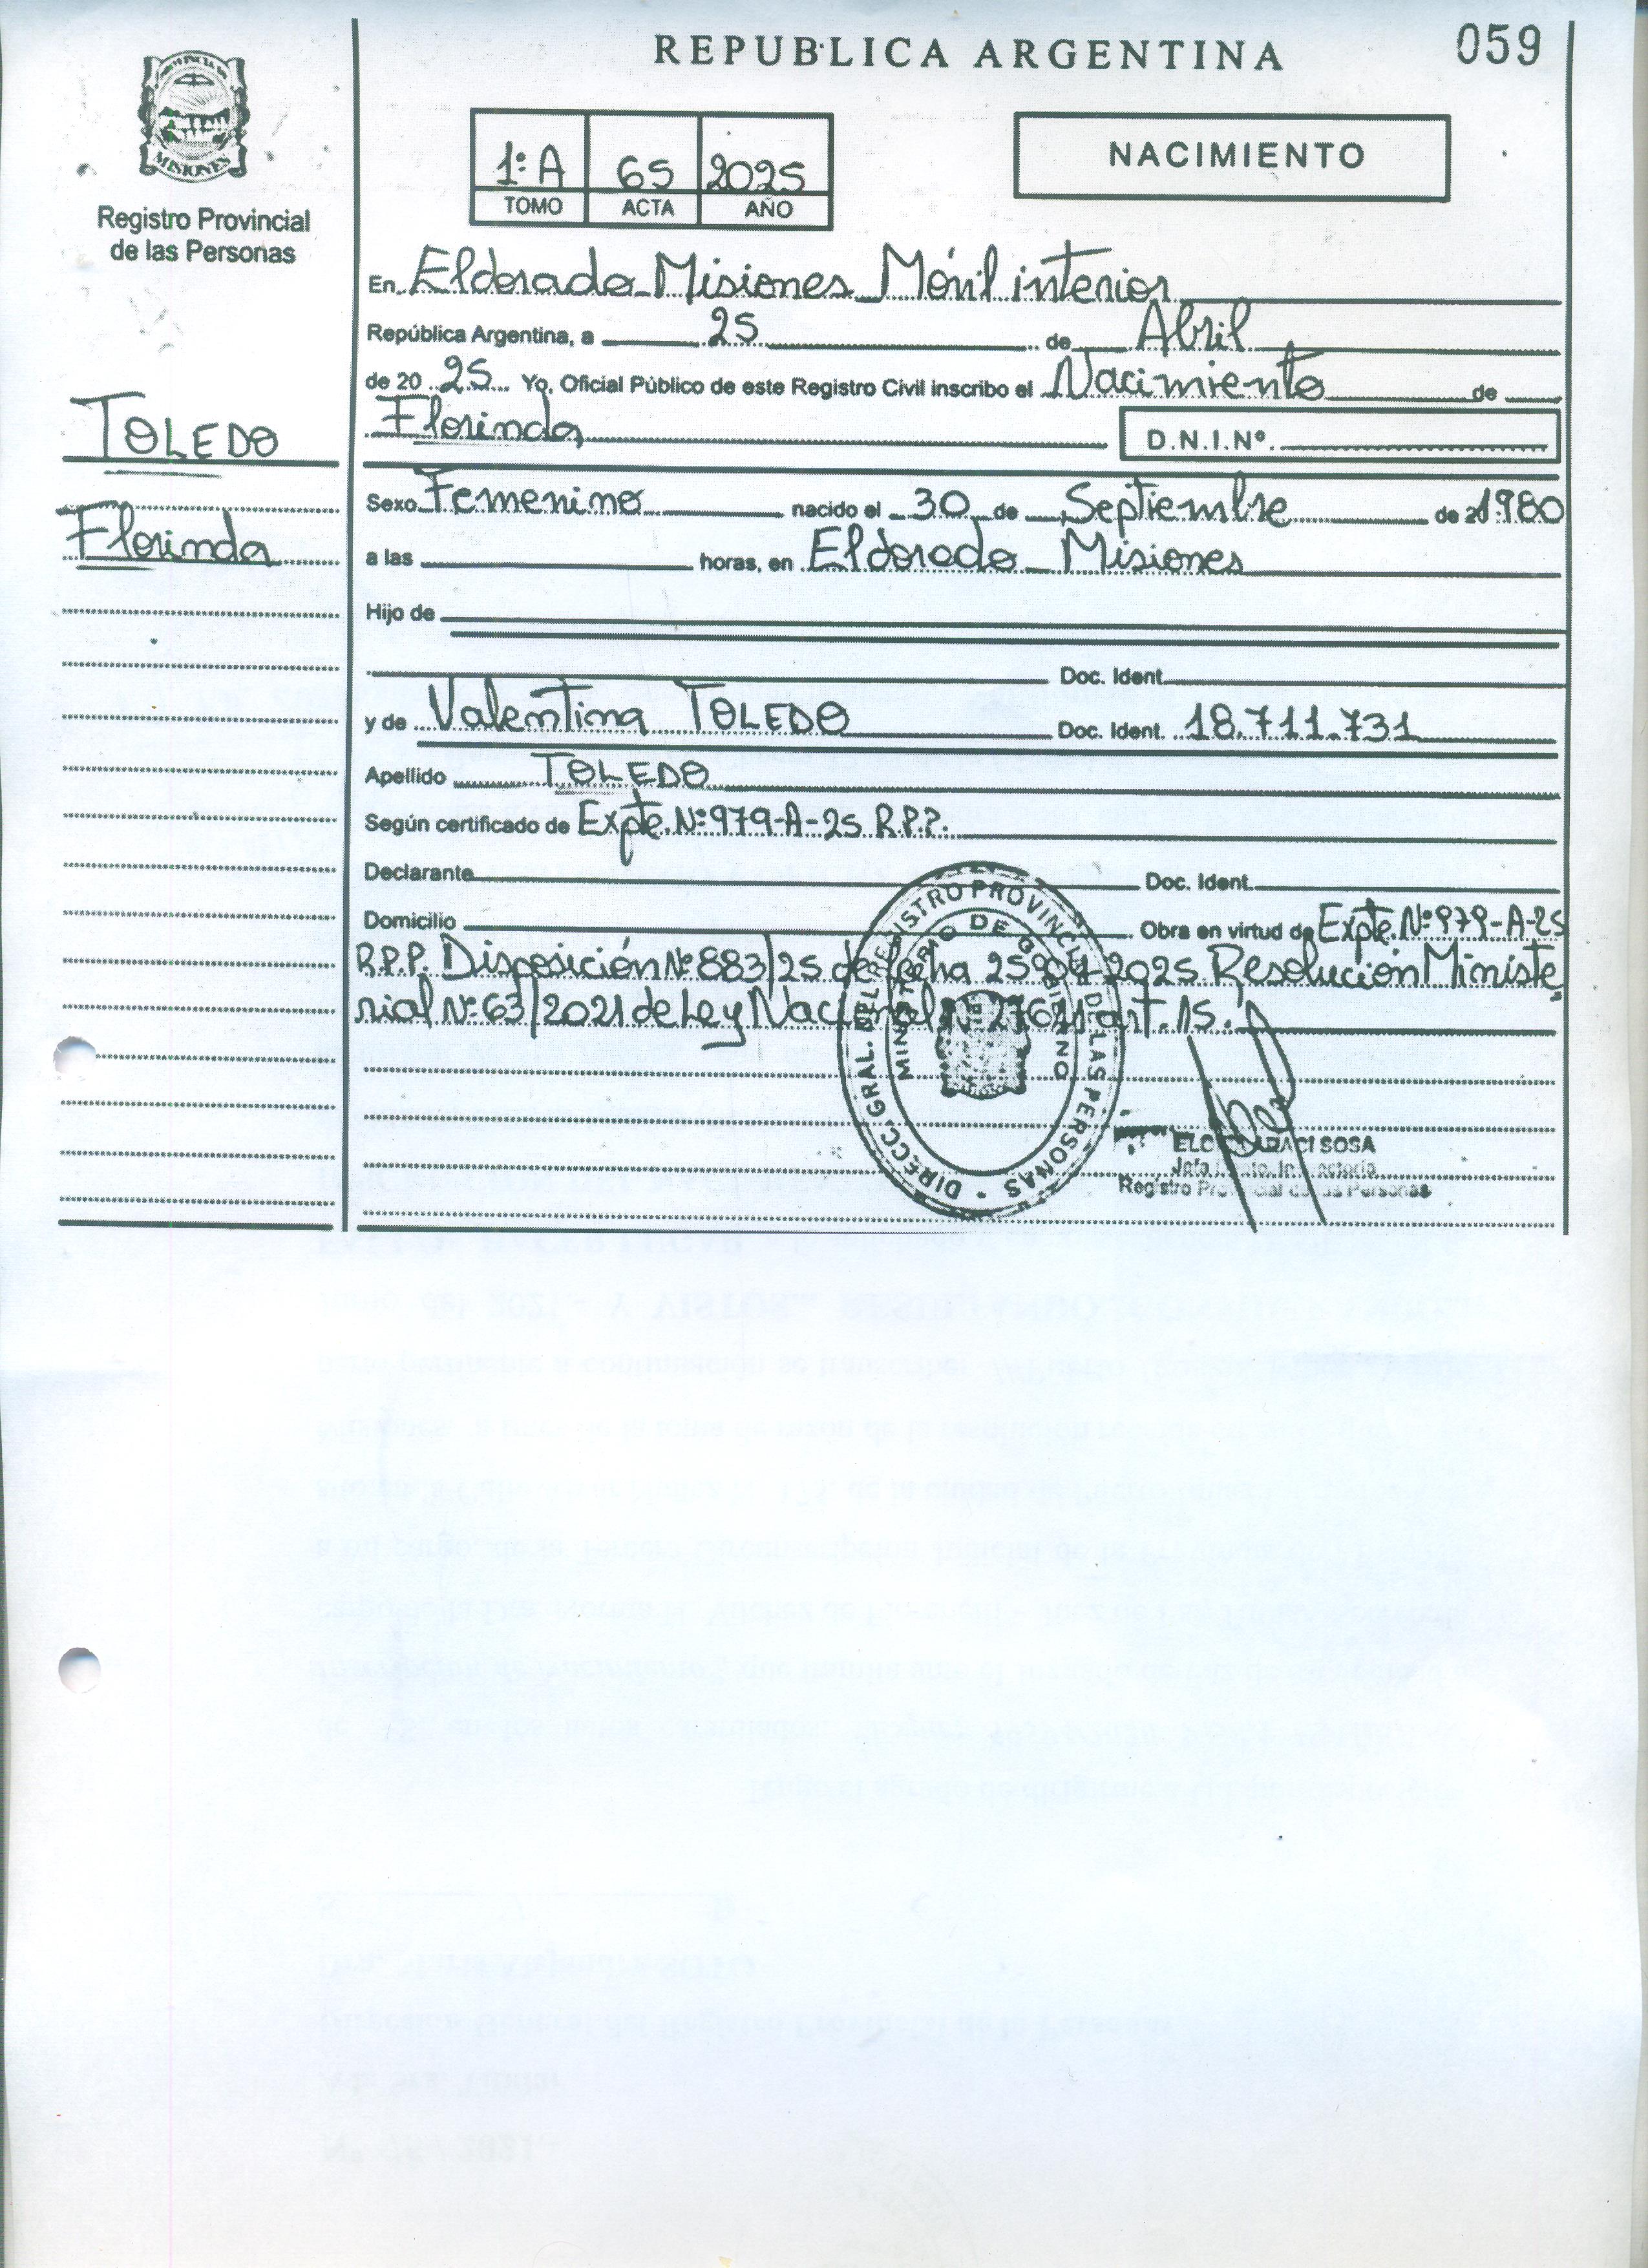 REPUBLICA ARGENTINA
059
MISIONES
Registro Provincial
de las Personas
1º A 65 2025
TOMO ACTA AÑO
NACIMIENTO
En Eldorado Misiones Móvil interior
República Argentina, a 25 de Abril
de 20 25 Yo, Oficial Público de este Registro Civil inscribo el Nacimiento de
Florinda D.N.I.Nº.
TOLEDO
Florinda
Sexo Femenino nacido el 30 de Septiembre de 1980
a las horas, en Eldorado Misiones
Hijo de
Doc. Ident.
y de Valentina TOLEDO Doc. Ident. 18.711.731
Apellido TOLEDO
Según certificado de Expte. Nº 979-A-25 R.P.P.
Declarante Doc. Ident.
Domicilio Obra en virtud de Expte. Nº 979-A-25
R.P.P. Disposición Nº 883/25 de fecha 25-04-2025. Resolución Ministe
rial Nº 63/2021 de Ley Nacional art. 15.
DIRECC. GRAL. DEL REGISTRO PROVINCIAL DE LAS PERSONAS
MINISTERIO DE GOBIERNO
SOSA
Registro Provincial de las Personas